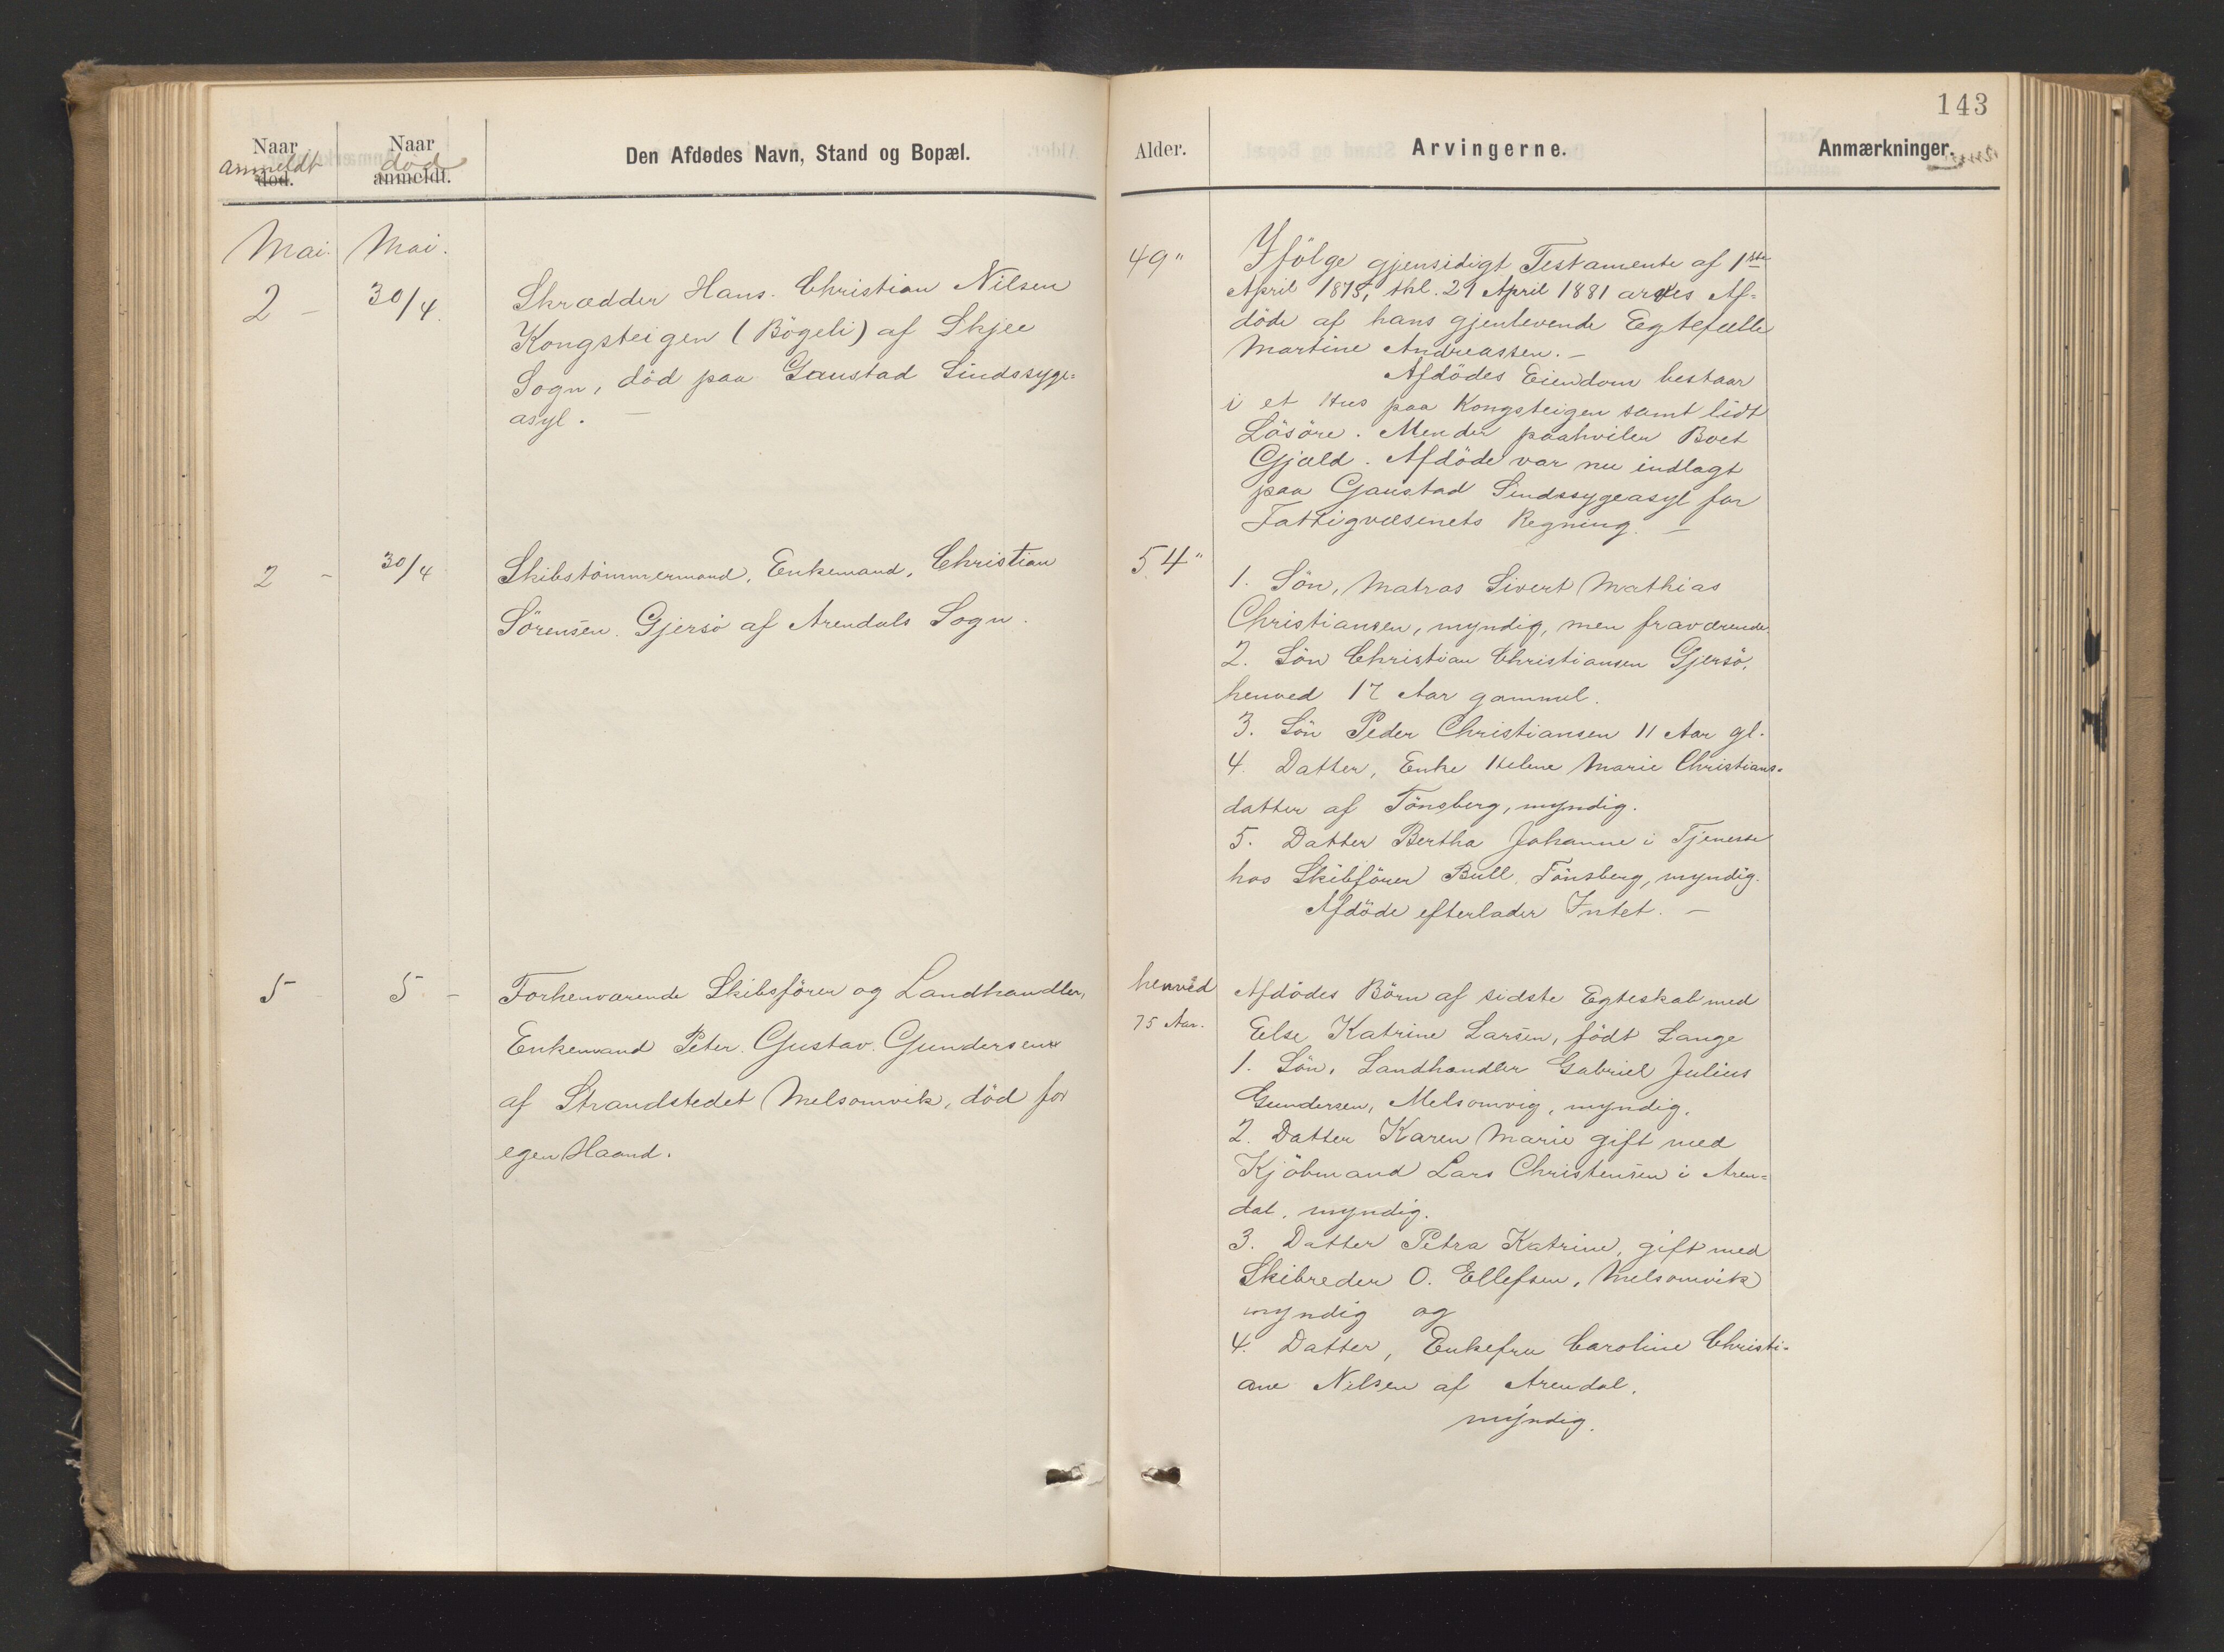 143
Naar Naar Den Afdødes Navn, Stand og Bopæl. Alder. Arvingerne. Anmærkninger.
anmeldt död
død. anmeldt.
Mai. Mai.
2 - 30/4.
Skrædder Hans Christian Nilsen
Kongsteigen (Bögeli) af Skjee
Sogn, död paa Gaustad Sindssyge=
asyl. —
49"
Ifölge gjensidigt Testamente af 1ste
April 1875, thl. 21 April 1881 arves Af=
döde af hans gjenlevende Egtefælle
Martine Andreassen. —
Afdödes Eiendom bestaar
i et Hus paa Kongsteigen samt lidt
Lösöre. Men der paahviler Boet
Gjæld. Afdöde var nu indlagt
paa Gaustad Sindssygeasyl for
Fattigvæsenets Regning. —
2 - 30/4
Skibstömmermand, Enkemand, Christian
Sörensen Gjersö af Arendals Sogn.
54"
1. Sön, Matros Sivert Mathias
Christiansen, myndig, men fraværende.
2. Sön Christian Christiansen Gjersö,
henved 17 Aar gammel.
3. Sön Peder Christiansen 11 Aar gl.
4. Datter, Enke Helene Marie Christians-
datter af Tönsberg, myndig.
5. Datter Bertha Johanne i Tjeneste
hos Skibförer Bull, Tönsberg, myndig.
Afdöde efterlader Intet. —
5 5 -
Forhenværende Skibsförer og Landhandler,
Enkemand Peter Gustav Gundersen
af Strandstedet Melsomvik, död for
egen Haand.
henved
75 Aar.
Afdödes Börn af sidste Egteskab med
Else Katrine Larsen, födt Lange
1. Sön, Landhandler Gabriel Julius
Gundersen, Melsomvig, myndig.
2. Datter Karen Marie gift med
Kjöbmand Lars Christensen i Aren=
dal, myndig.
3. Datter Petra Katrine, gift med
Skibreder O. Ellefsen, Melsomvik
myndig og
4. Datter, Enkefru Caroline Christi-
ane Nilsen af Arendal,
myndig.